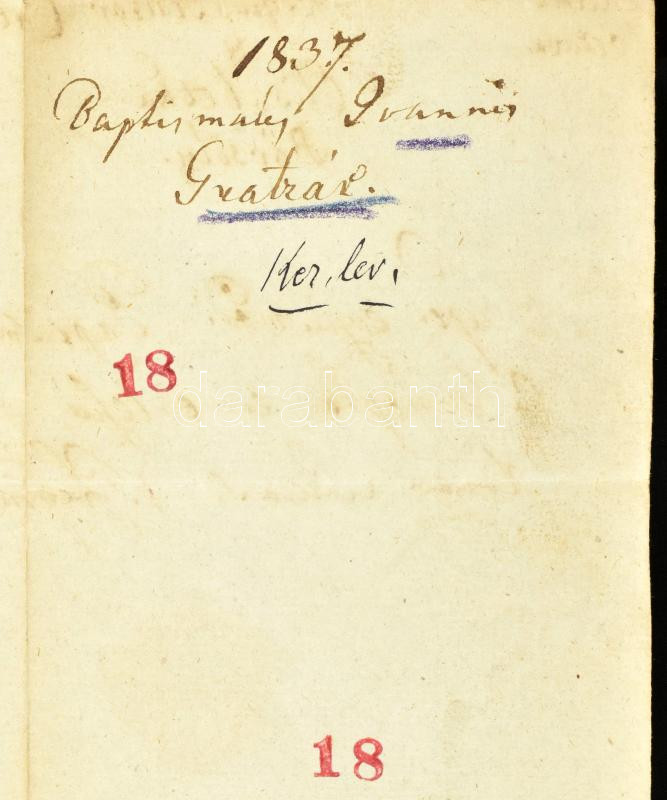 1837.
Baptismales Ioannis
Gratzár.
Ker. lev.
18
darabanth
18